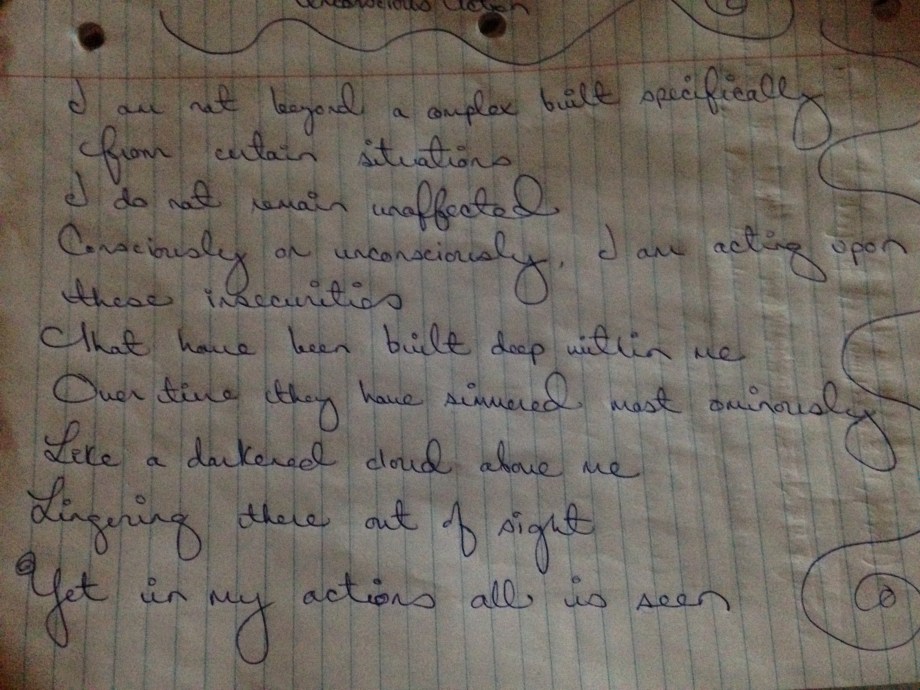 Unconscious Action
I am not beyond a complex built specifically
from certain situations
I do not remain unaffected
Consciously or unconsciously, I am acting upon
these insecurities
That have been built deep within me
Over time they have simmered most ominously
Like a darkened cloud above me
Lingering there out of sight
Yet in my actions all is seen